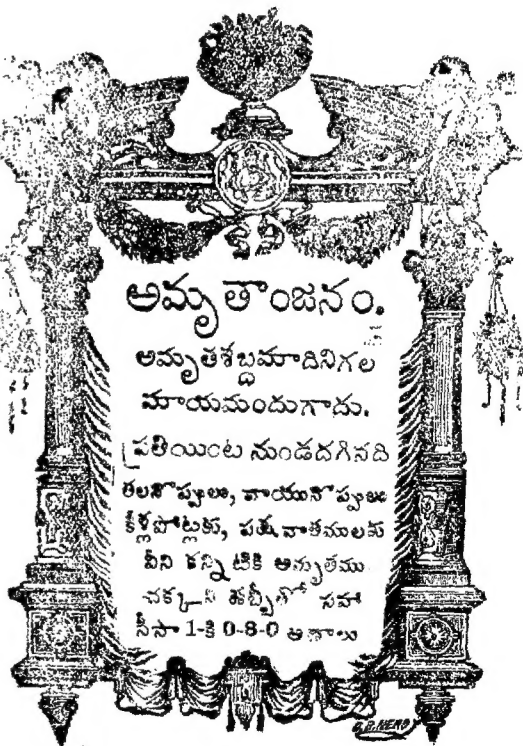 అమృతాంజనం.
అమృతశబ్దమాదినిగల
మాయమందుగాదు.
ప్రతియింట నుండదగినది
తలనొప్పులు, వాయునొప్పులు
కీళ్లపోట్లకు, పక్షవాతములకు
వీని కన్నిటికి అమృతము
చక్కని డబ్బీతో సహా
సీసా 1-కి 0-8-0 అణాలు